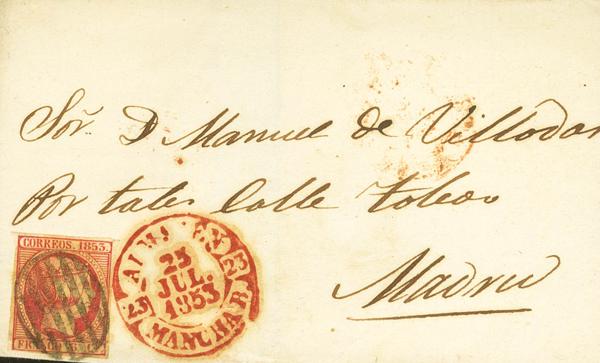 Sor. D Manuel de Villodas
Portales Calle Toledo
Madrid
CORREOS. 1853.
FRANCO 6 C
25
JUL.
1853
23
23
MANCHA B.